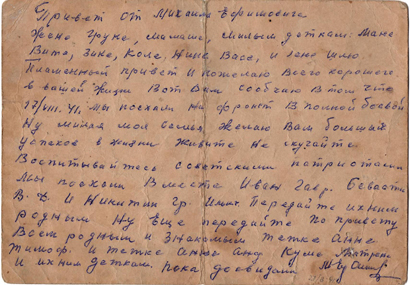 Привет от Михаила Ефимовича
Жене Груне, мамаше, милым деткам. Мане
Вите, Зине, Коле, Нине, Васе, и Лене шлю
Пламенный привет и пожелаю всего хорошего
в вашей жизни Вот Вам сообчаю в том что
17/VIII. 41. мы поехали на фронт в полной боевой
Ну милая моя семья, желаю Вам больших
успехов в жизни живите Не скучайте
Воспитывайтесь советскими патриотами
Мы поехали вместе Иван Гавр.
В. Д. и Никитин Гр. Передайте ихним
родным Ну Еще передайте по привету
Всем родным и знакомым тетке Анне
Тимоф. и тетке Анне Куме
И ихним деткам. Пока досвидания